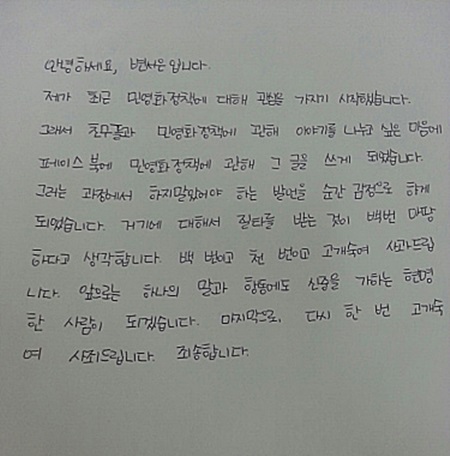 안녕하세요, 변서은입니다.
제가 최근 민영화정책에 대해 관심을 가지기 시작했습니다.
그래서 친구들과 민영화정책에 관해 이야기를 나누고 싶은 마음에
페이스북에 민영화정책에 관해 그 글을 쓰게 되었습니다.
그러는 과정에서 하지말았어야 하는 발언을 순간 감정으로 하게
되었습니다. 거기에 대해서 질타를 받는 것이 백번 마땅
하다고 생각합니다. 백 번이고 천 번이고 고개숙여 사과드립
니다. 앞으로는 하나의 말과 행동에도 신중을 가하는 현명
한 사람이 되겠습니다. 마지막으로, 다시 한 번 고개숙
여 사죄드립니다. 죄송합니다.